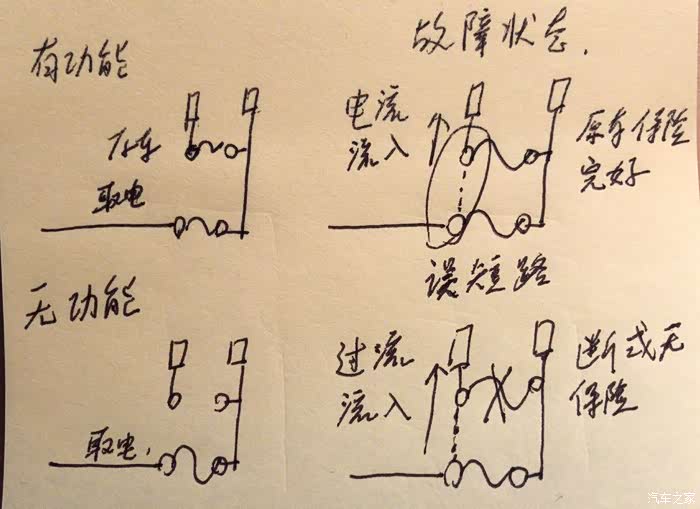 有功能
故障状态.
原车
取电
电流
流入
原车保险
完好
误短路
无功能
取电.
过流
流入
断或无
保险
汽车之家